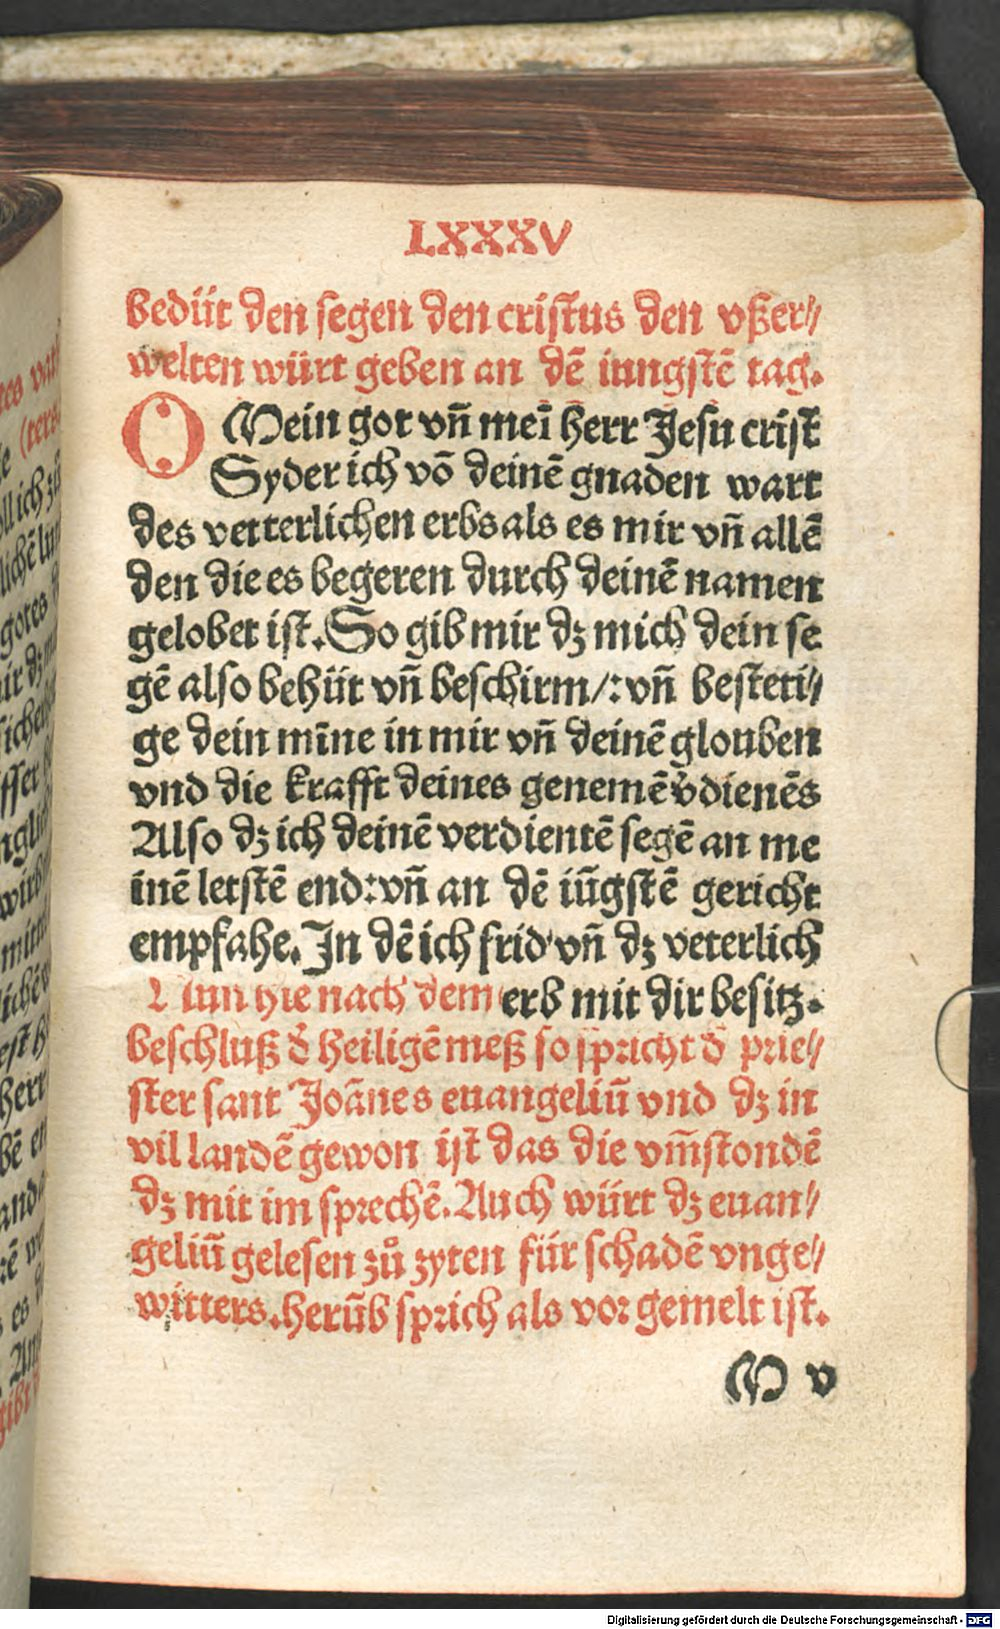 LXXXV
bedüt den segen den cristus den vßer⸗
welten würt geben an dē iungstē tag.
O Mein got vñ meī herr Jesu crist
Syder ich vō deinē gnaden wart
des vetterlichen erbs als es mir vñ allē
den die es begeren durch deinē namen
gelobet ist. So gib mir dz mich dein se
gē also behüt vñ beschirm/: vñ besteti⸗
ge dein mīne in mir vñ deinē glouben
vnd die krafft deines genemē v̄dienēs
Also dz ich deinē verdientē segē an me
inē letstē end: vñ an dē iūgstē gericht
empfahe. In dē ich frid vñ dz veterlich
erb mit dir besitz.
Nun hie nach dem
beschluß d̄ heiligē meß so spricht d̄ prie⸗
ster sant Joānes euangeliū vnd dz in
vil landē gewon ist das die vm̄stondē
dz mit im sprechē. Auch würt dz euan⸗
geliū gelesen zů zyten für schadē vnge⸗
witters. herūb sprich als vor gemelt ist.
M v
Digitalisierung gefördert durch die Deutsche Forschungsgemeinschaft - DFG